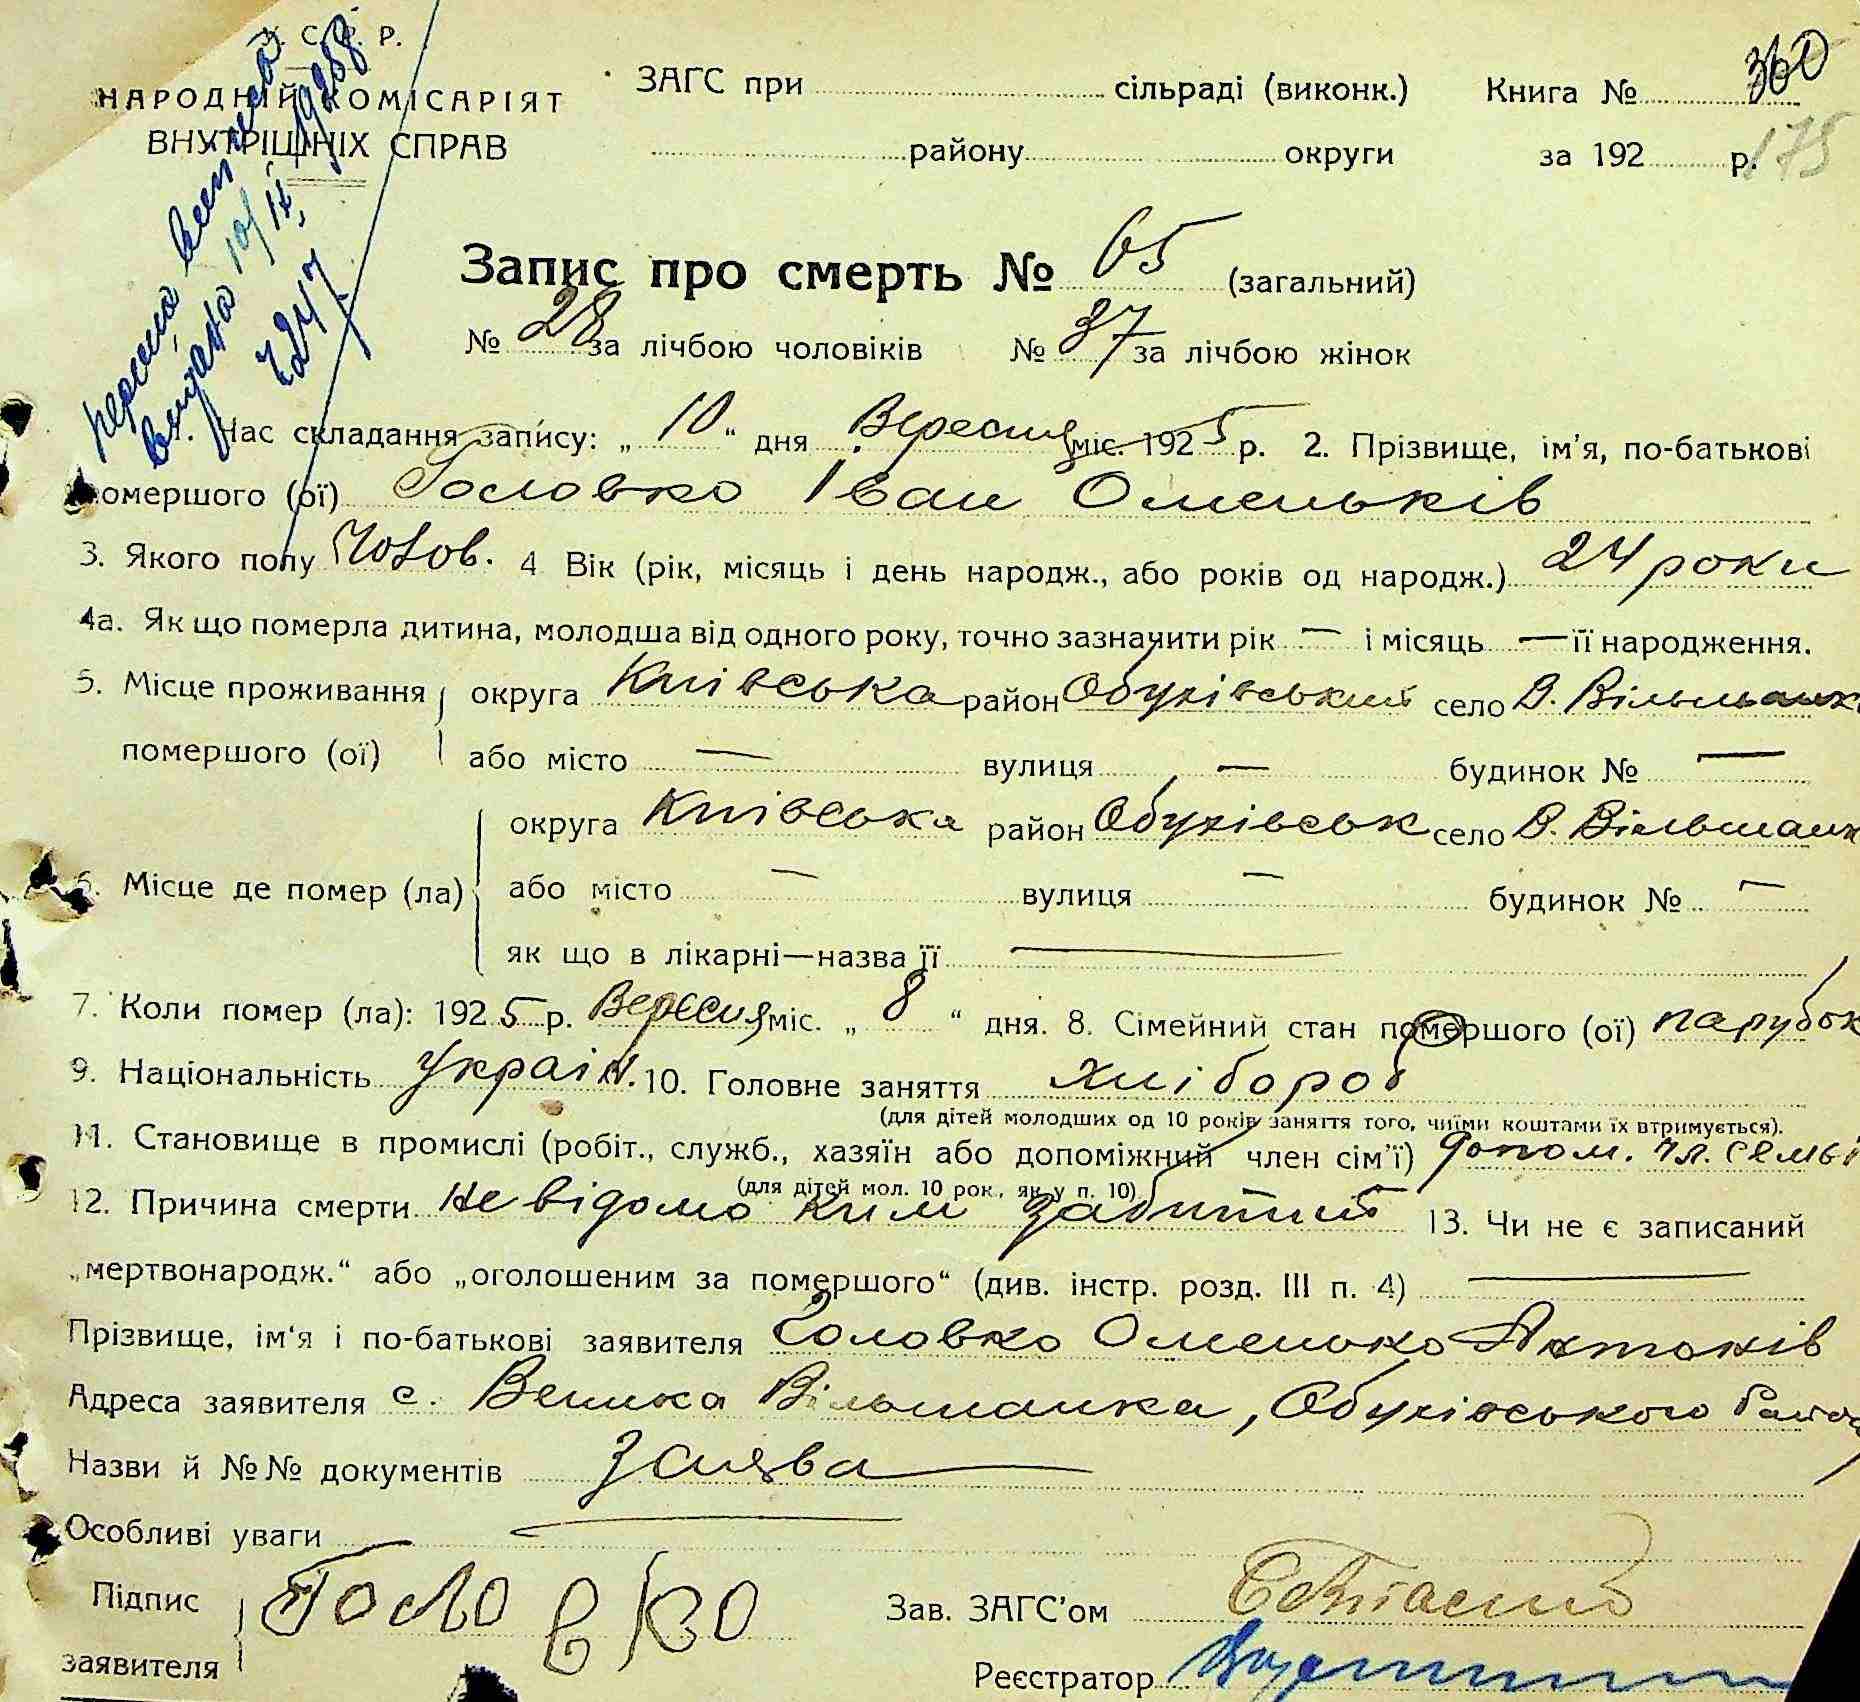 У. С. Р. Р.
НАРОДНІЙ КОМІСАРІЯТ
ВНУТРІШНІХ СПРАВ
ЗАГС при сільраді (виконк.) Книга № 360
району округи за 192 р. 175
перша виписка
видана 10/II 1928 р.
Запис про смерть № 65 (загальний)
№ 28 за лічбою чоловіків № 37 за лічбою жінок
1. Час складання запису: „ 10 “ дня Вересня міс. 1925 р. 2. Прізвище, ім'я, по-батькові
помершого (ої) Головко Іван Оменьків
3. Якого полу Чолов. 4 Вік (рік, місяць і день народж., або років од народж.) 24 роки
4а. Як що померла дитина, молодша від одного року, точно зазначити рік — і місяць — її народження.
5. Місце проживання округа Київська район Обухівський село В. Вільшанка
помершого (ої) або місто — вулиця — будинок № —
округа Київська район Обухівськ село В. Вільшанк
6. Місце де помер (ла) або місто — вулиця — будинок № —
як що в лікарні—назва її —
7. Коли помер (ла): 1925 р. Вересня міс. „ 8 “ дня. 8. Сімейний стан помершого (ої) парубок
9. Національність Україн. 10. Головне заняття хлібороб
(для дітей молодших од 10 років заняття того, чиїми коштами їх втримується).
11. Становище в промислі (робіт., служб., хазяїн або допоміжний член сім'ї) допом. чл. семьі
(для дітей мол. 10 рок., як у п. 10)
12. Причина смерти Не відомо ким забитий 13. Чи не є записаний
„мертвонародж.“ або „оголошеним за помершого“ (див. інстр. розд. III п. 4) —
Прізвище, ім'я і по-батькові заявителя Головко Оменько Антонів
Адреса заявителя с. Велика Вільшанка, Обухівського Району
Назви й №№ документів Заява
Особливі уваги —
Підпис Головко Зав. ЗАГС'ом
заявителя Реєстратор